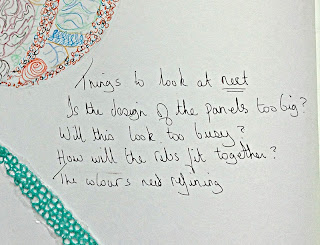 Things to look at next
Is the design of the panels too big?
Will this look too busy?
How will the ribs fit together?
The colours need refining